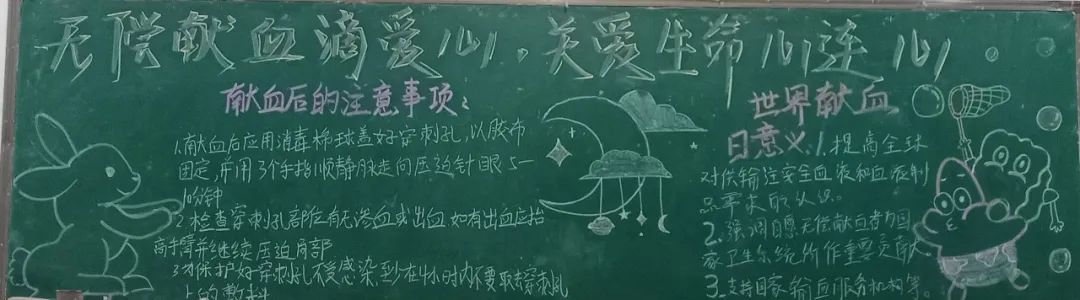 无偿献血滴爱心,关爱生命心连心
献血后的注意事项：
1.献血后应用消毒棉球盖好穿刺孔,以胶布
固定,并用3个手指顺静脉走向压迫针眼5一
10分钟
2.检查穿刺孔部位有无渗血或出血如有出血应抬
高手臂并继续压迫肩部
3.保护好穿刺孔不受感染,至少在4小时内不要取去穿刺孔
上的敷料
世界献血
日意义:1.提高全球
对供输注安全血液和血液制
品要求的认识。
2.强调自愿无偿献血者为国
家卫生系统所作重要贡献
3.支持国家输血服务机构等。